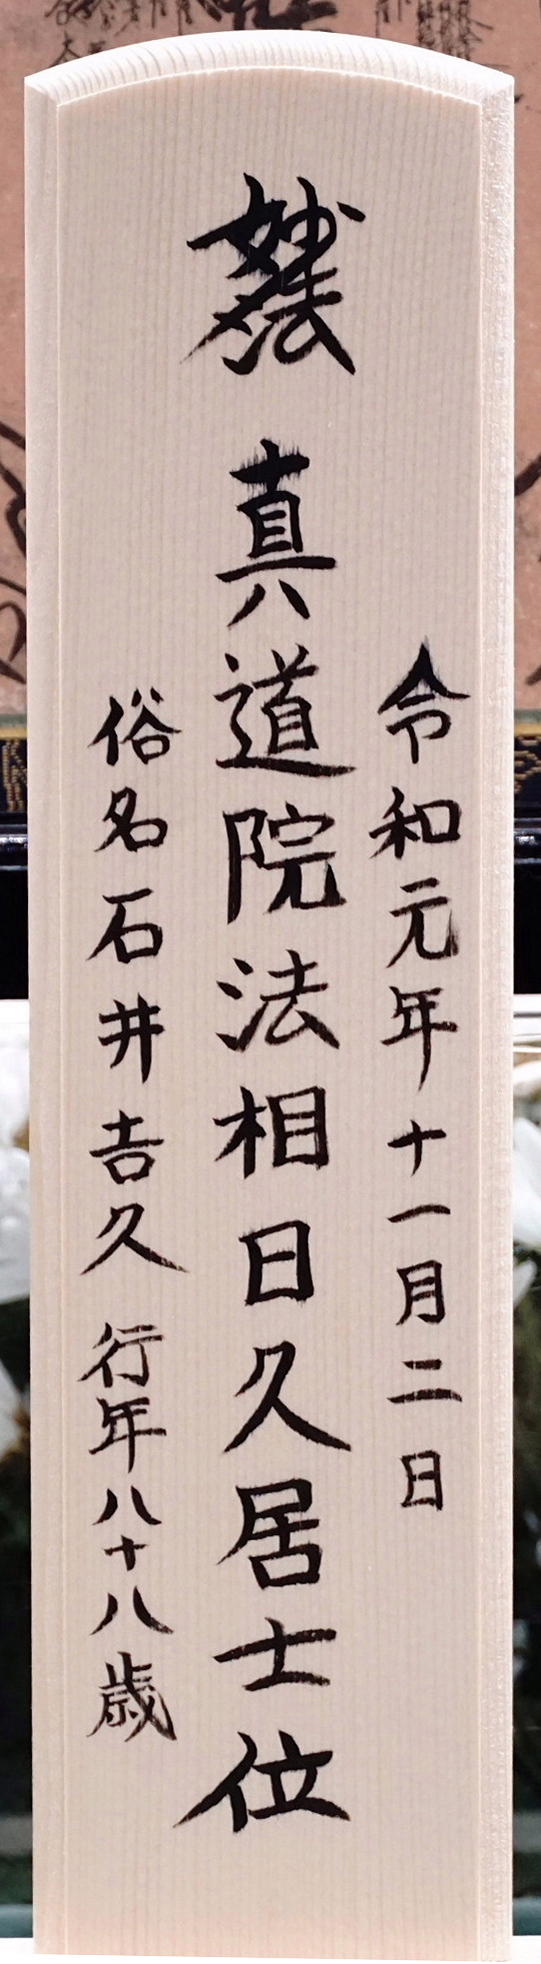 令和元年十一月二日
妙法 真道院法相日久居士位
俗名石井𠮷久 行年八十八歳